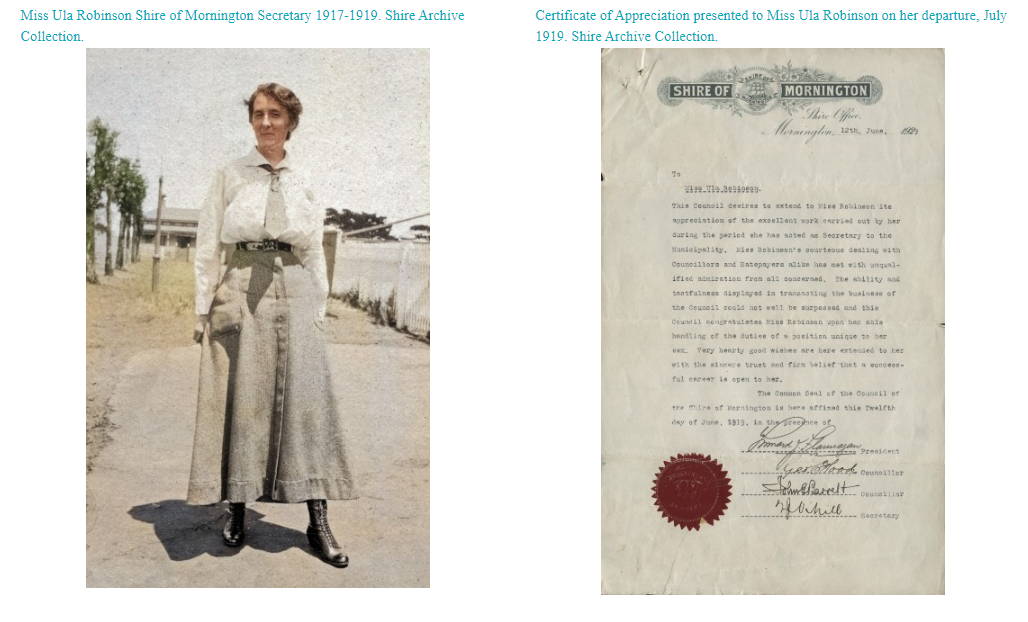 Miss Ula Robinson Shire of Mornington Secretary 1917-1919. Shire Archive
Collection.
Certificate of Appreciation presented to Miss Ula Robinson on her departure, July
1919. Shire Archive Collection.
SHIRE OF MORNINGTON
Shire Office,
Mornington, 12th, June,
To
Miss Ula Robinson.
This Council desires to extend to Miss Robinson its
appreciation of the excellent work carried out by her
during the period she has acted as Secretary to the
Municipality. Miss Robinson's courteous dealing with
Councillors and Ratepayers alike has met with unqual-
ified admiration from all concerned. The ability and
tactfulness displayed in transacting the business of
the Council could not well be surpassed and this
Council congratulates Miss Robinson upon her able
handling of the duties of a position unique to her
sex. Very hearty good wishes are here extended to her
with the sincere trust and firm belief that a success-
ful career is open to her.
The Common Seal of the Council of
the Shire of Mornington is here affixed this Twelfth
day of June, 1919, in the presence of
President
Councillor
Councillor
Secretary